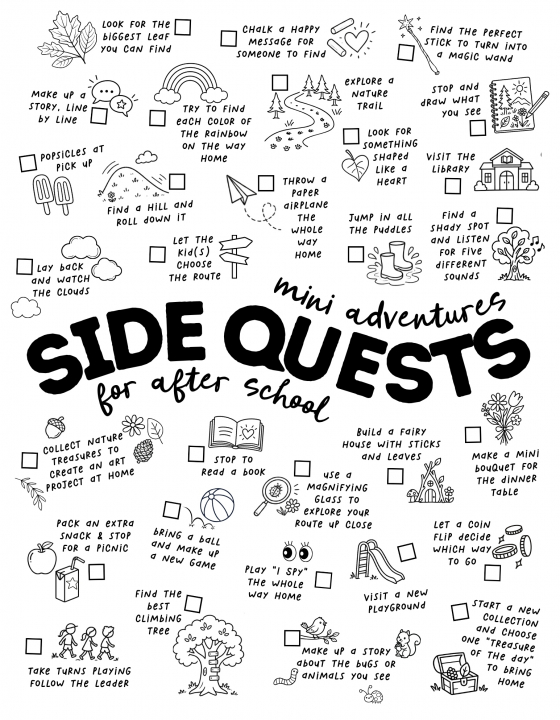 LOOK FOR THE
BIGGEST LEAF
YOU CAN FIND
CHALK A HAPPY
MESSAGE FOR
SOMEONE TO FIND
FIND THE PERFECT
STICK TO TURN INTO
A MAGIC WAND
MAKE UP A
STORY, LINE
BY LINE
TRY TO FIND
EACH COLOR OF
THE RAINBOW
ON THE WAY
HOME
EXPLORE A
NATURE
TRAIL
STOP AND
DRAW WHAT
YOU SEE
LOOK FOR
SOMETHING
SHAPED
LIKE A
HEART
POPSICLES AT
PICK UP
VISIT THE
LIBRARY
FIND A HILL AND
ROLL DOWN IT
THROW A
PAPER
AIRPLANE
THE
WHOLE
WAY
HOME
JUMP IN ALL
THE PUDDLES
FIND A
SHADY SPOT
AND LISTEN
FOR FIVE
DIFFERENT
SOUNDS
LAY BACK
AND WATCH
THE CLOUDS
LET THE
KID(S)
CHOOSE
THE ROUTE
mini adventures
SIDE QUESTS
for after school
COLLECT NATURE
TREASURES TO
CREATE AN ART
PROJECT AT HOME
STOP TO
READ A BOOK
BUILD A FAIRY
HOUSE WITH STICKS
AND LEAVES
MAKE A MINI
BOUQUET FOR
THE DINNER
TABLE
USE A
MAGNIFYING
GLASS TO
EXPLORE YOUR
ROUTE UP CLOSE
PACK AN EXTRA
SNACK & STOP
FOR A PICNIC
BRING A BALL
AND MAKE UP
A NEW GAME
PLAY "I SPY"
THE WHOLE
WAY HOME
VISIT A NEW
PLAYGROUND
LET A COIN
FLIP DECIDE
WHICH WAY
TO GO
FIND THE
BEST
CLIMBING
TREE
TAKE TURNS PLAYING
FOLLOW THE LEADER
MAKE UP A STORY
ABOUT THE BUGS OR
ANIMALS YOU SEE
START A NEW
COLLECTION
AND CHOOSE
ONE "TREASURE
OF THE DAY"
TO BRING
HOME